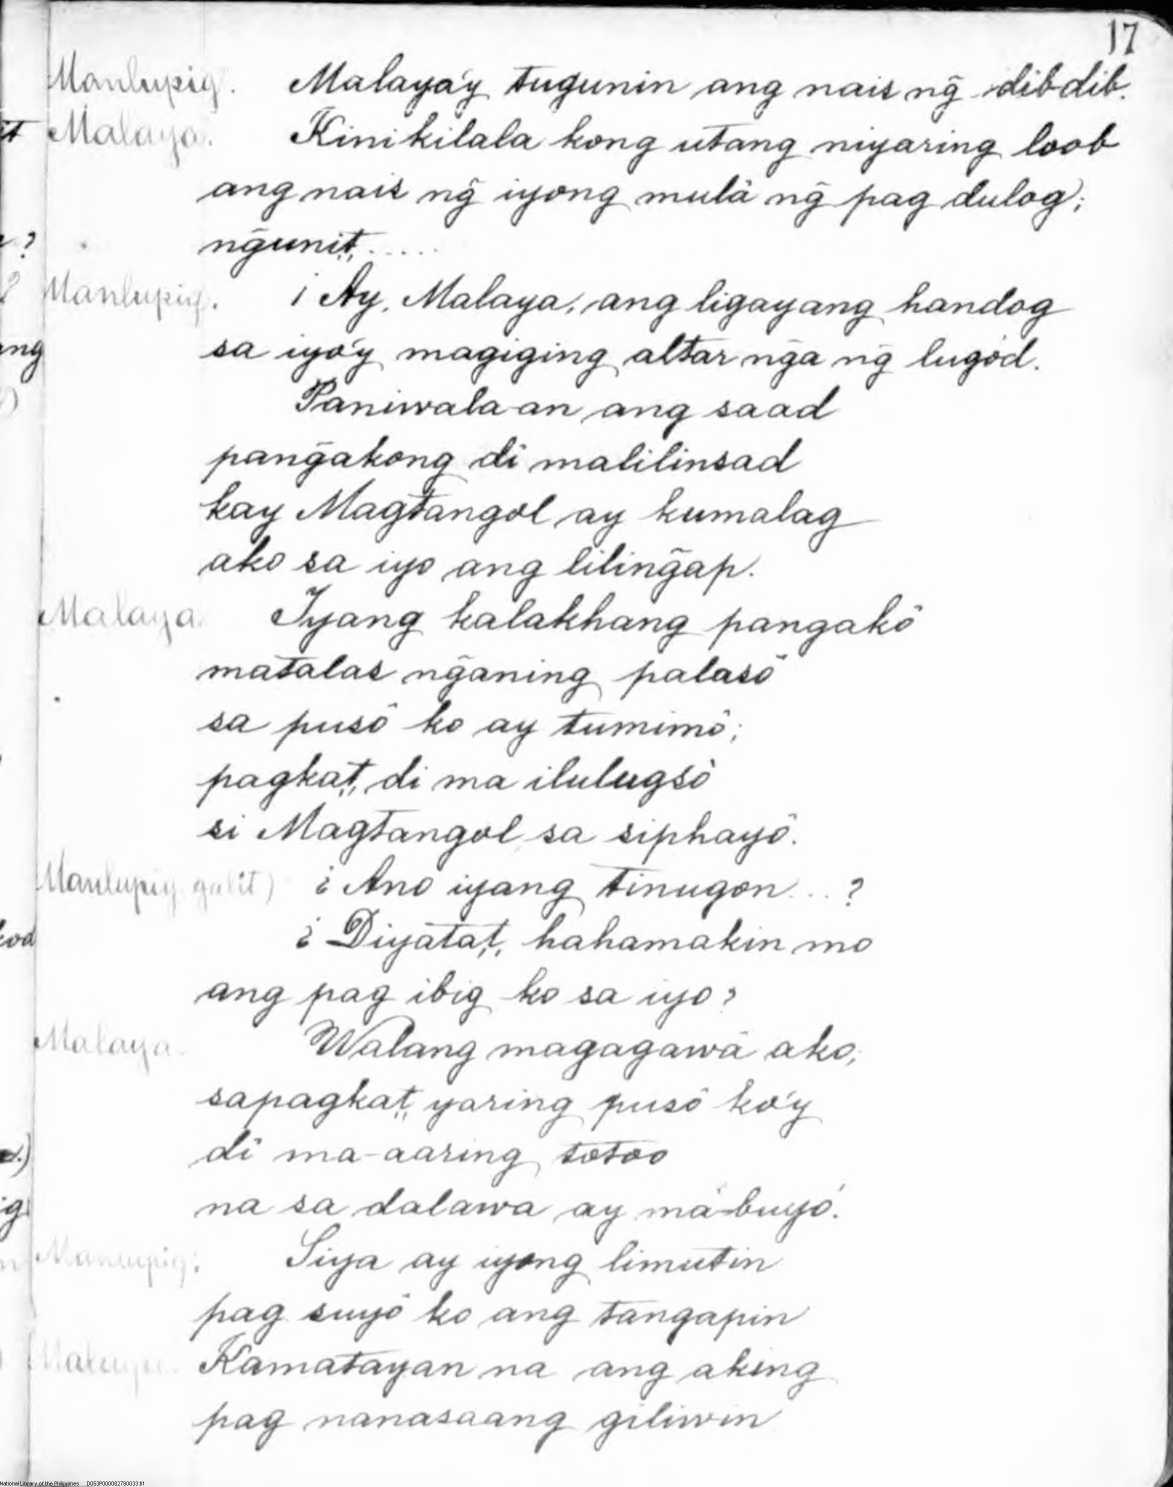 17
Manlupig. Malaya'y tugunin ang nais ng̃ dibdib.
Malaya. Kinikilala kong utang niyaring loob
ang nais ng̃ iyong mulâ ng̃ pag dulog;
ng̃unit,.....
Manlupig. ¡Ay, Malaya!, ang ligayang handog
sa iyo'y magiging altar ng̃a ng̃ lugod.
Paniwala-an ang saad
pang̃akong di malilinsad
kay Magtangol ay kumalag
ako sa iyo ang liling̃ap.
Malaya. Iyang kalakhang pangakô
matalas ng̃aning palasô
sa pusô ko ay tumimô;
pagkat, di ma ilulugsô
si Magtangol sa siphayô.
Manlupig galit) ¿Ano iyang tinugon...?
¿Diyatat, hahamakin mo
ang pag ibig ko sa iyo?
Malaya. Walang magagawâ ako,
sapagkat, yaring pusô ko'y
di ma-aaring totoo
na sa dalawa ay má-buyó.
Manlupig: Siya ay iyong limutin
pag suyô ko ang tangapin
Malaya. Kamatayan na ang aking
pag nanasaang giliwin
National Library of the Philippines